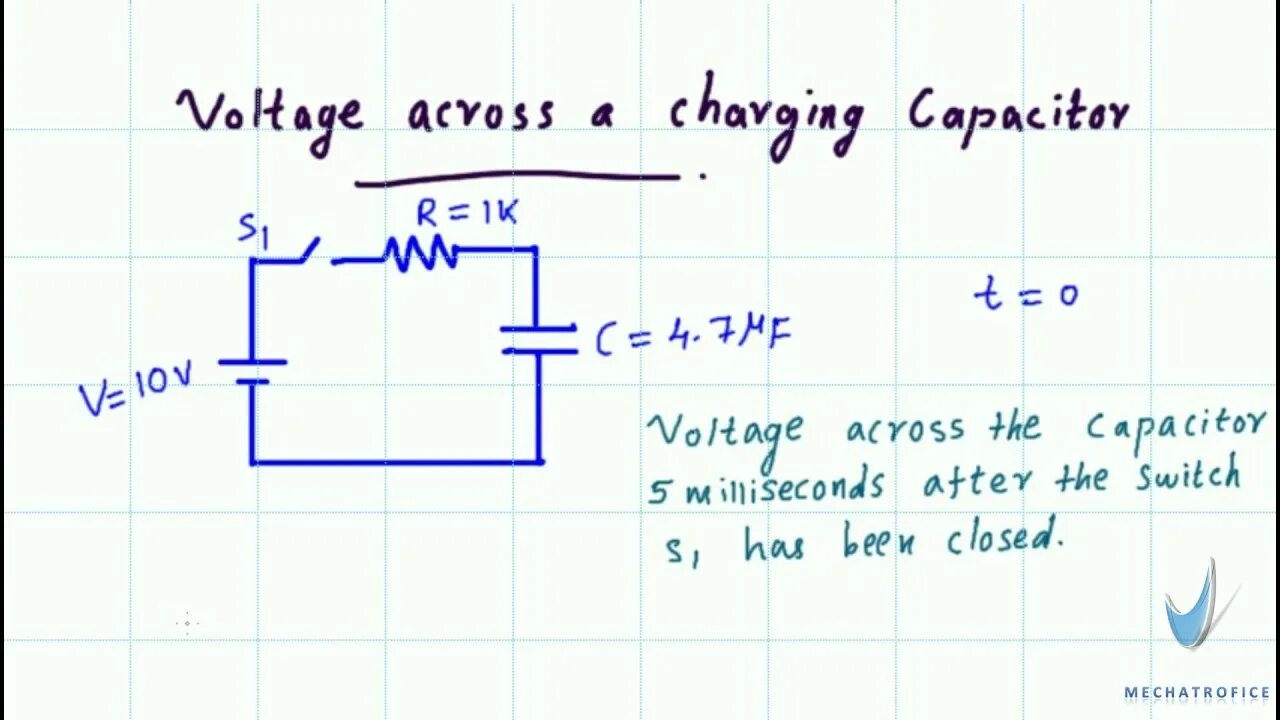 Voltage across a charging Capacitor
S1
R = 1K
t = 0
C = 4.7μF
V = 10V
Voltage across the capacitor
5 milliseconds after the switch
S1 has been closed.
MECHATROFICE